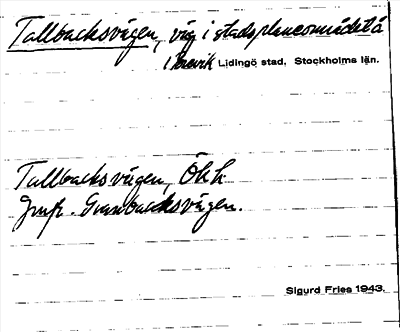 Tallbacksvägen, väg i stadsplaneområdet å
Brevik Lidingö stad, Stockholms län.
Tallbacksvägen, Ökk
Jmfr. Granbacksvägen.
Sigurd Fries 1943.